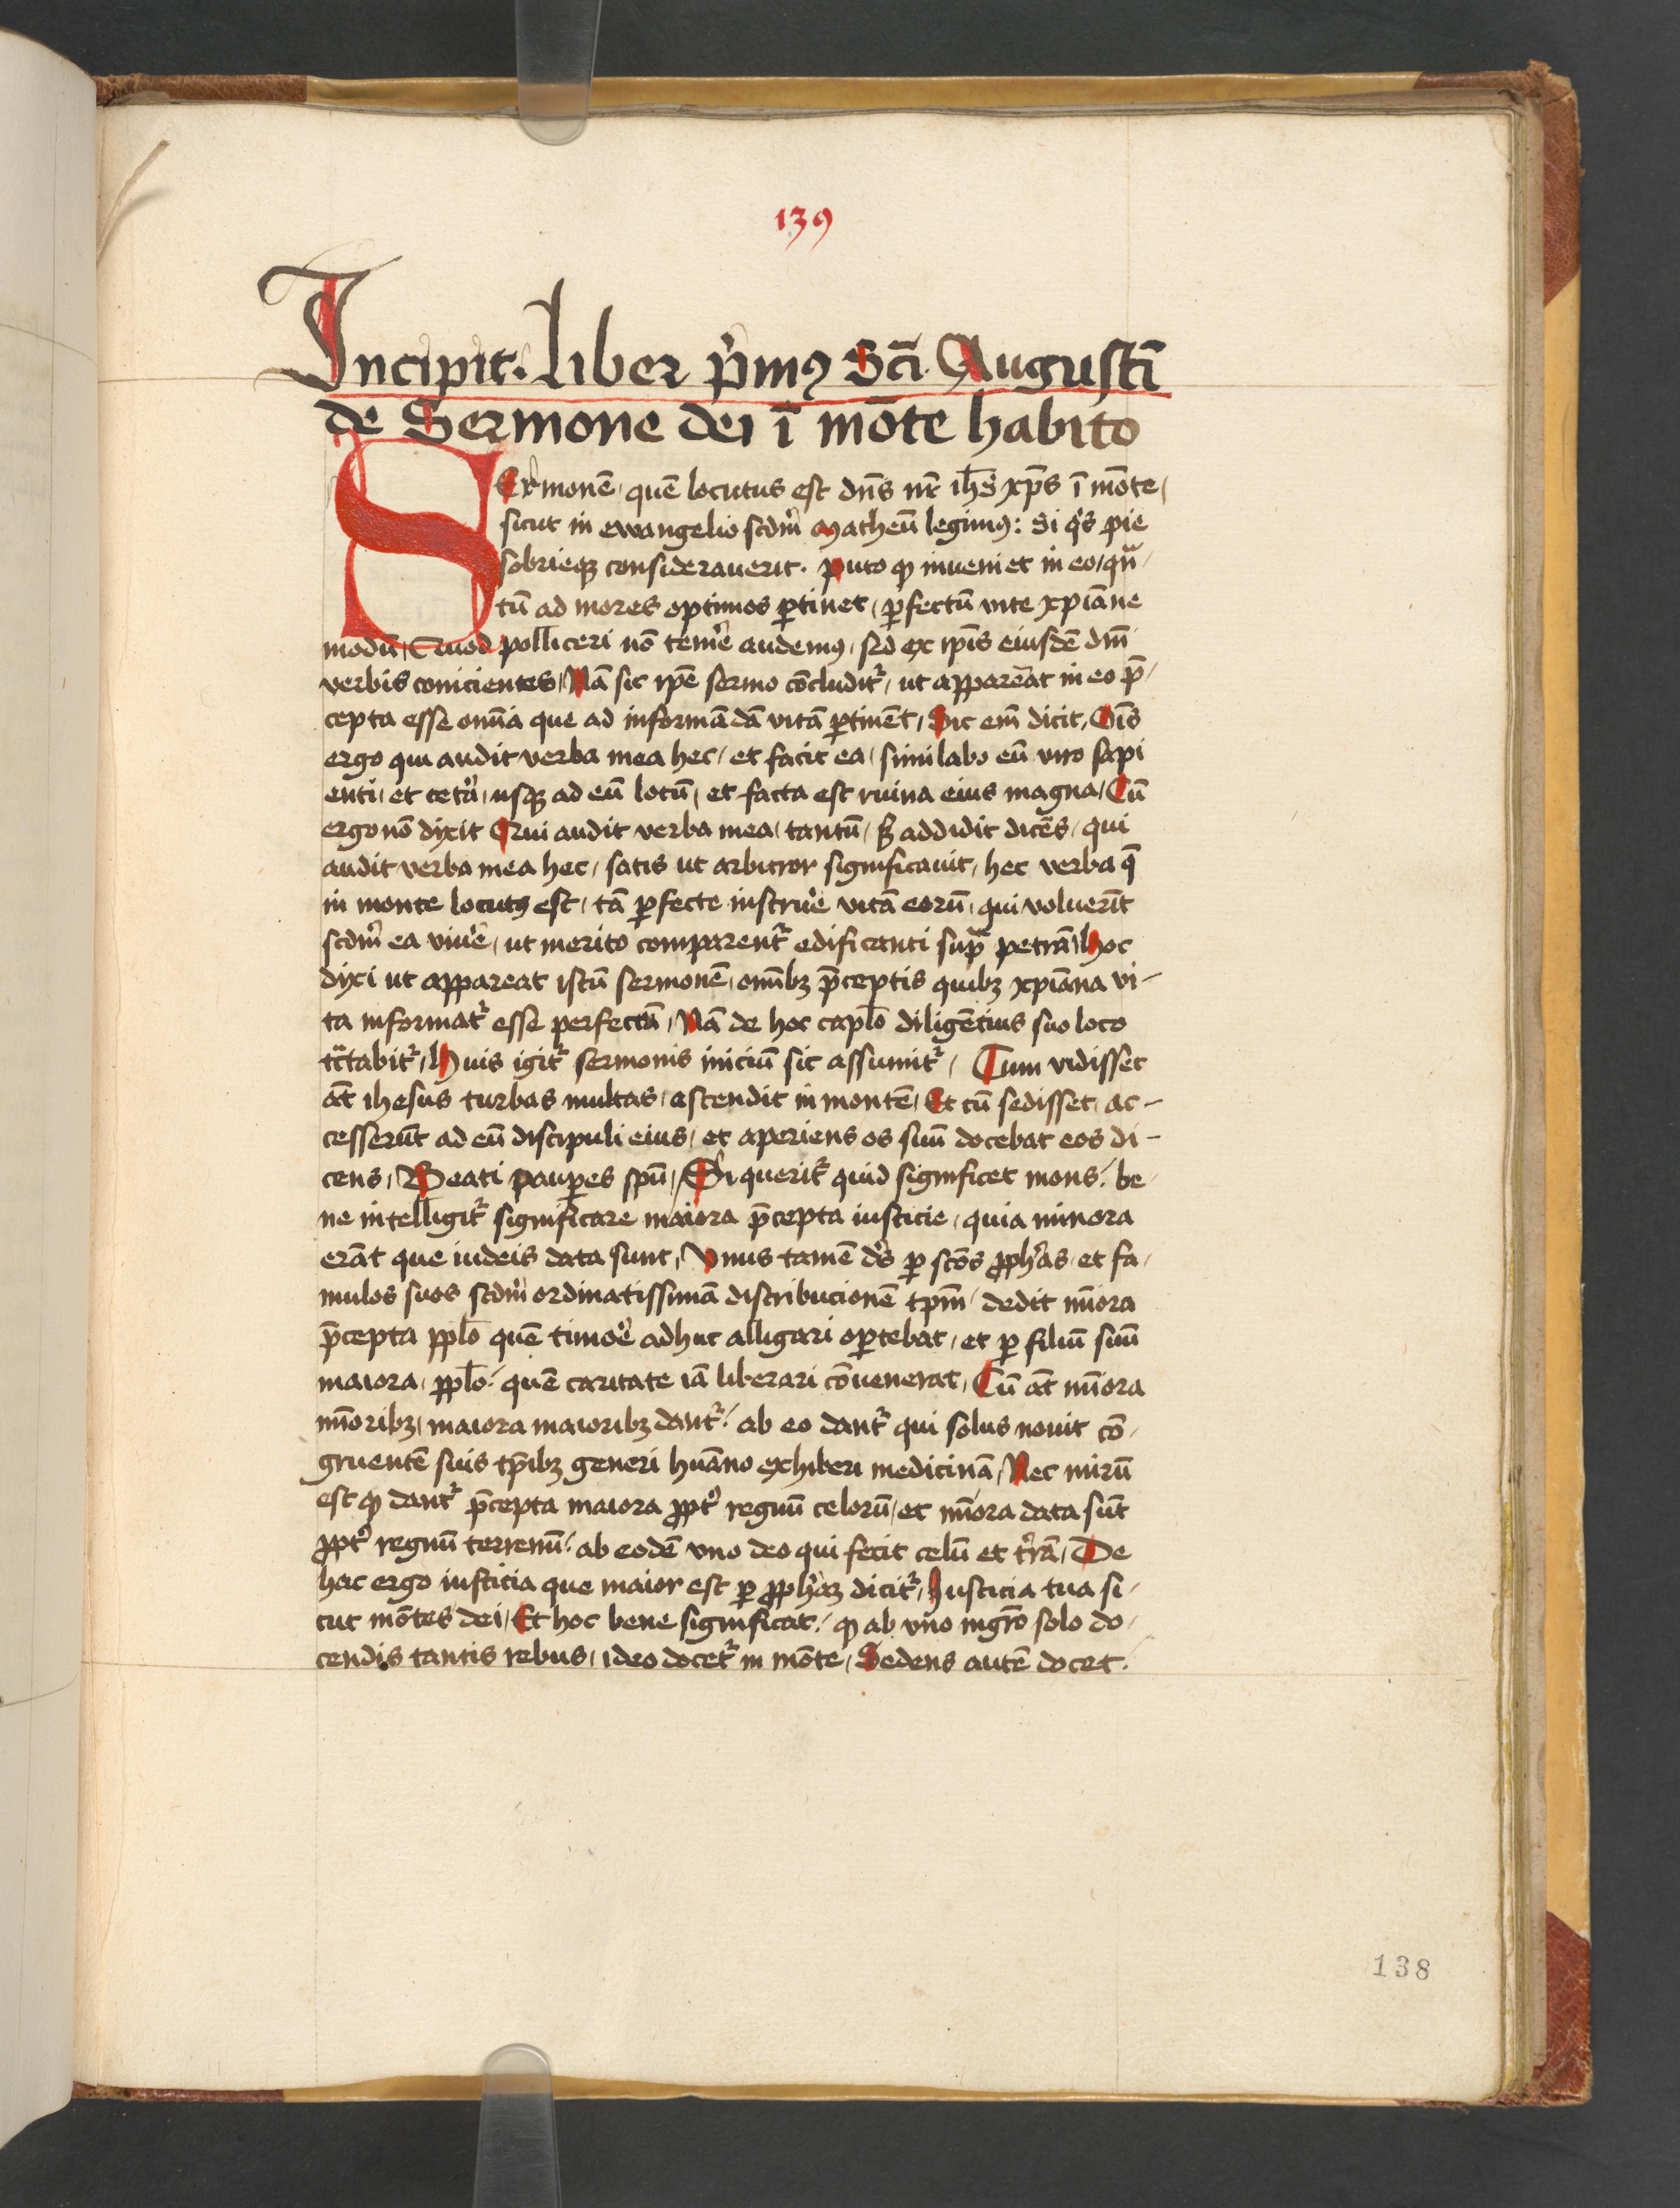 139
Incipit. Liber p̍mꝰ Sc̄i. Augusti̅
de Sermone dei i̅ mo̅te habito
SEr̍mone̅ que̅ locutus est dn̅s nr̅ ihs̅ xp̅s i̅ mo̅te
sicut in ewangelio scdm̍ matheu̅ legimꝰ: Si q̍s pie
sobrieqꝫ considerauerit. puto ꝙ inueniet in eo / qn̅
tu̅ ad mores optimos ꝑtinet, ꝑfectu̅ vite xpi̅ane
modu̅, Quod polliceri no̅ tem̍e audemꝰ, sꝫ ex ip̅is eiusde̅ dn̅i
verbis conicientes, Na̅ sic ip̅e sermo co̅cludit̍, ut appareat in eo p̅
cepta esse om̅ia que ad informa̅da̅ vita̅ ꝑtine̅t, Sic em̅ dicit, Om̅s
ergo qui audit verba mea hec, et facit ea, similabo eu̅ viro sapi
enti, et cet̍a, usqꝫ ad eu̅ locu̅, et facta est ruina eius magna, Cu̅
ergo no̅ dixit Qui audit verba mea, tantu̅, sꝫ addidit dice̅s, qui
audit verba mea hec, satis ut arbitror significauit, hec verba q̅
in monte locutꝰ est, ta̅ ꝑfecte instru̍e vita̅ eoru̅, qui voluer̅it
scdm̍ ea viu̍e, ut merito comparent̍ edificanti sup̅ petra̅, hoc
dixi ut appareat istu̅ sermone̅, om̅ibꝫ p̅ceptis quibꝫ xpi̅ana vi-
ta informat̍ esse perfectu̅, Na̅ de hoc capl̅o dilige̅tius suo loco
tc̅tabit̍, Huis igit̍ sermonis iniciu̅ sic assumit̍, Cum vidisset
au̅t ihesus turbas multas, ascendit in monte̅, Et cu̅ sedisset, ac-
cesseru̅t ad eu̅ discipuli eius, et aperiens os suu̅ docebat eos di-
cens, Beati pauꝑes sp̅u, Si querit̍ quid significet mons. be
ne intelligit̍ significare maiora p̅cepta iusticie, quia minora
era̅t que iudeis data sunt, Vnus tame̅ ds̍ ꝑ sc̅os ꝓph̍as et fa
mulos suos scdm̍ ordinatissima̅ distribucione̅ tp̅m, dedit mi̅ora
p̅cepta ppl̅o que̅ timor̍e adhuc alligari oꝑtebat, et ꝑ filiu̅ suu̅
maiora, ppl̅o. que̅ caritate ia̅ liberari co̅uenerat, Cu̅ au̅t mi̅ora
mi̅oribꝫ, maiora maioribꝫ dant̍. ab eo dant̍ qui solus nouit co̅
gruente̅ suis tp̅ibꝫ generi hua̅no exhiberi medicina̅, Nec miru̅
est ꝙ dant̍ p̅cepta maiora ꝓpt̍ regnu̅ celoru̅, et mi̅ora data su̅t
ꝓpt̍ regnu̅ terrenu̅. ab eode̅ vno deo qui fecit celu̅ et t̍ra̅, De
hac ergo iusticia que maior est ꝑ ꝓph̍aꝫ dicit̍, Iusticia tua si
cut mo̅tes dei, Et hoc bene significat. ꝙ ab vno mgr̅o solo do
cendis tantis rebus, ideo docet̍ in mo̅te, Sedens aute̅ docet.
138